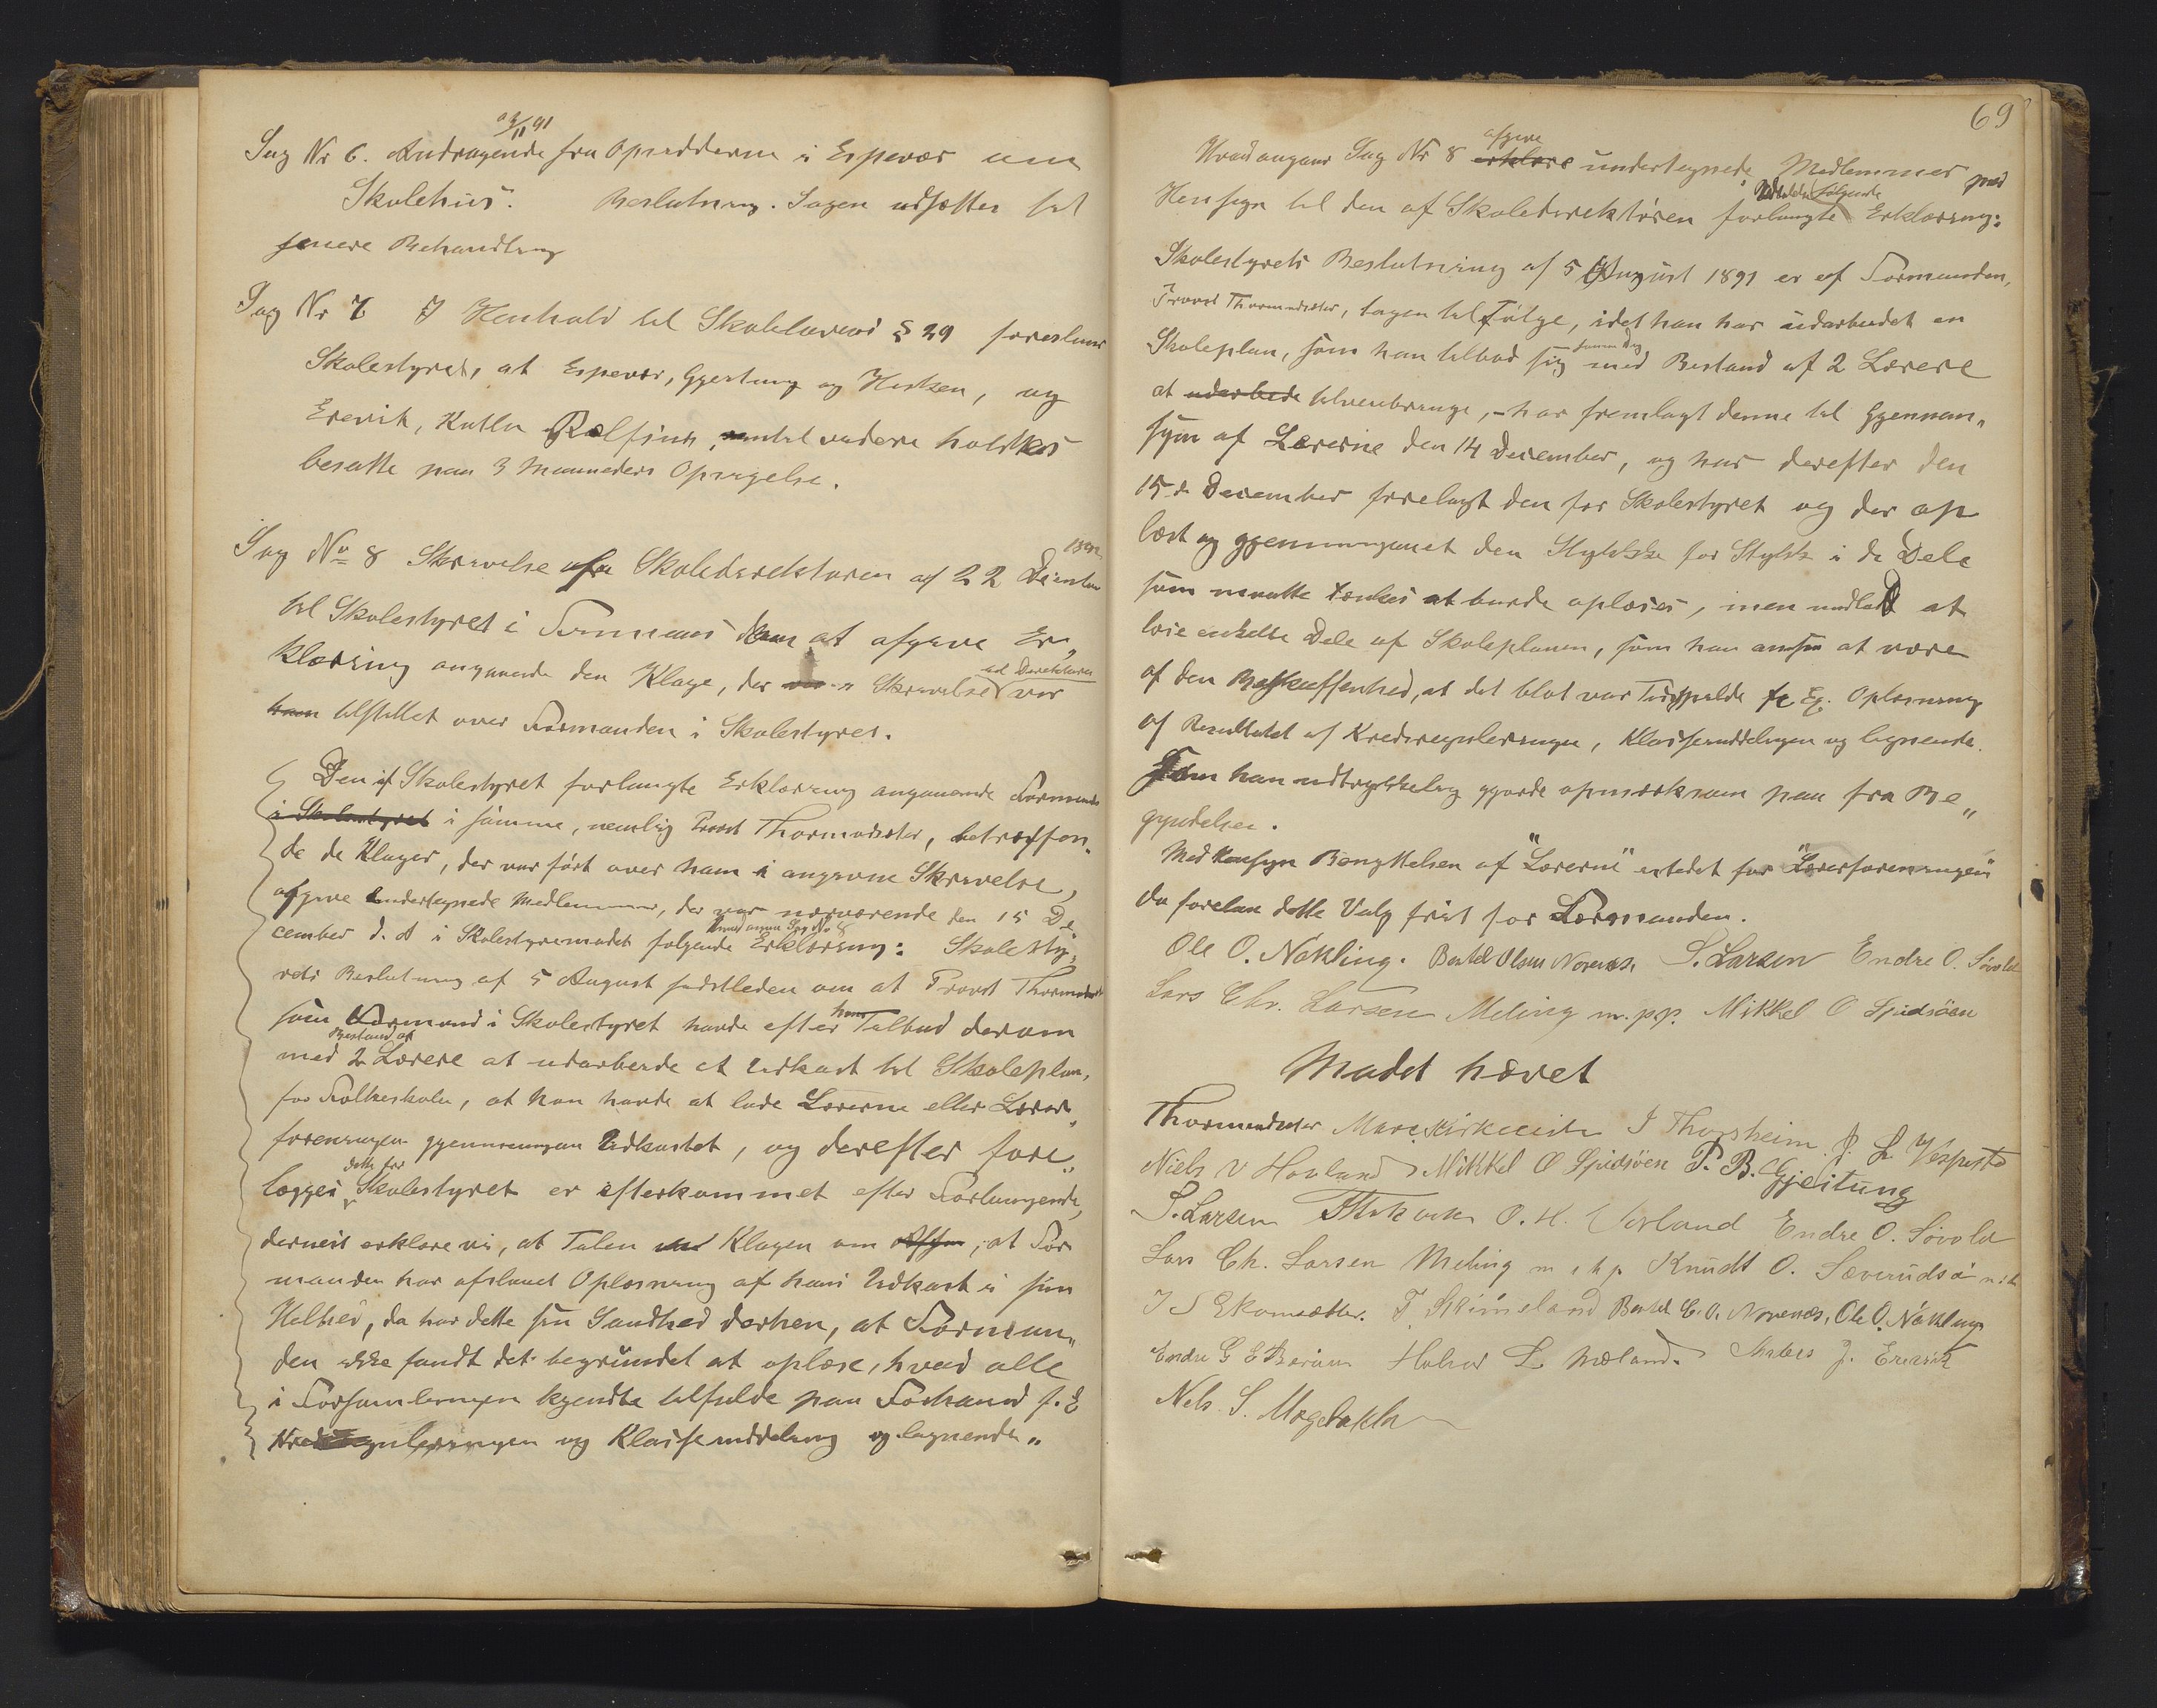 09/11 91
Sag Nr 6. Andragende fra Opsidderne i Espevær um
Skolehus. Beslutning. Sagen udsættes til
senere Behandling
Sag Nr 7 I Henhold til Skolelovens § 29 foreslaar
Skolestyret, at Espevær, Gjeitung og Hisken, og
Erevik, Kulle Rølfsnes, indtil videre holdes
besatte paa 3 Maaneders Opsigelse.
Sag No 8 Skrivelse fra Skoledirektøren af 22 Decmber 1891
til Skolestyret i Finnaas om at afgive Er„
klæring angaaende den Klage, der i Skrivelse til Direktøren var
ham tilstillet over Formanden i Skolestyret.
Den af Skolestyret forlangte Erklæring angaaende Formanden
i Skolestyret i samme, nemlig Provst Thormodsæter, betræffen„
de de Klager, der var ført over ham i angivne Skrivelse,
afgive undertegnede Medlemmer, der var nærværende den 15 De„
cember d. A i Skolestyremødet følgende Erklæring: Skolesty„
hvad angaar Sag No 8
rets Beslutning af 5 August sidstleden om at Provst Thormodsæter
som Formand i Skolestyret havde efter hans Tilbud derom
Bestand af
med 2 Lærere at udarbeide et Udkast til Skoleplan,
for Folkeskolen, at han havde at lade Lærerne eller Lærer„
foreningen gjennemgaa Udkastet, og derefter fore„
lægges dette for Skolestyret er efterkommet efter Forlangende,
dernest erklære vi, at Talen Klagen om , at For
manden har afslaaet Oplæsning af hans Udkast i sin
Helhed, da har dette sin Sandhed derhen, at Forman„
den ikke fandt det begrundet at oplæse, hvad alle
i Forsamlingen kjendte tilfulde paa Forhaand f. E
Kredsreguleringen og Klasseinddeling og lignende„
69
Hvad angaar Sag Nr 8 erklære afgive undertegnede Medlemmer med
Hensyn til den af Skoledirektøren forlangte følgende Erklæring:
Skolestyrets Beslutning af 5 August 1891 er af Formanden,
Provst Thormodsæter, tagen til Følge, idet han har udarbeidet en
Skoleplan, som han tilbød sig samme Dag med Bestand af 2 Lærere
at udarbeide tilveiebringe, - har fremlagt denne til Gjennem„
syn af Lærerne den 14 December, og har derefter den
15de December forelagt den for Skolestyret og der op
læst og gjennemgaaet den Stykke for Stykke i de Dele
som maatte tænkes at burde oplæses, men undlod at
læse enkelte Dele af Skoleplanen, som han ansaa at være
af den Beskaffenhed, at det blot var Tidsspilde f. Ex. Oplæsning
af Resultatet af Kredsreguleringen, Klasseinddelingen og lignende.
Som han udtrykkelig gjorde opmærksom paa fra Be„
gyndelsen.
Med Hensyn Benyttelsen af "Lærerne" istedet for "Lærerforeningen"
da forelaa dette Valg frit for Formanden.
Ole O. Nökling. Bertel Olsen Norenæs. S. Larsen Endre O. Søvold
Lars Chr. Larsen Meling m. p. p. Mikkel O Spidsöen
Mødet hævet
Thormodsæter J Thorsheim J. L. Vespestad
Niels V Hovland Mikkel O Spidsöen P. B. Gjeitung
S. Larsen O. H. Vorland Endre O. Søvold
Lars Ch. Larsen Meling m. p. Knudt O. Sæverudsö
T. Skimeland Bertel C. O. Norenæs, Ole O. Nökling
Endre G E Halvor L Mæland. J. Erevik
Nels. S.